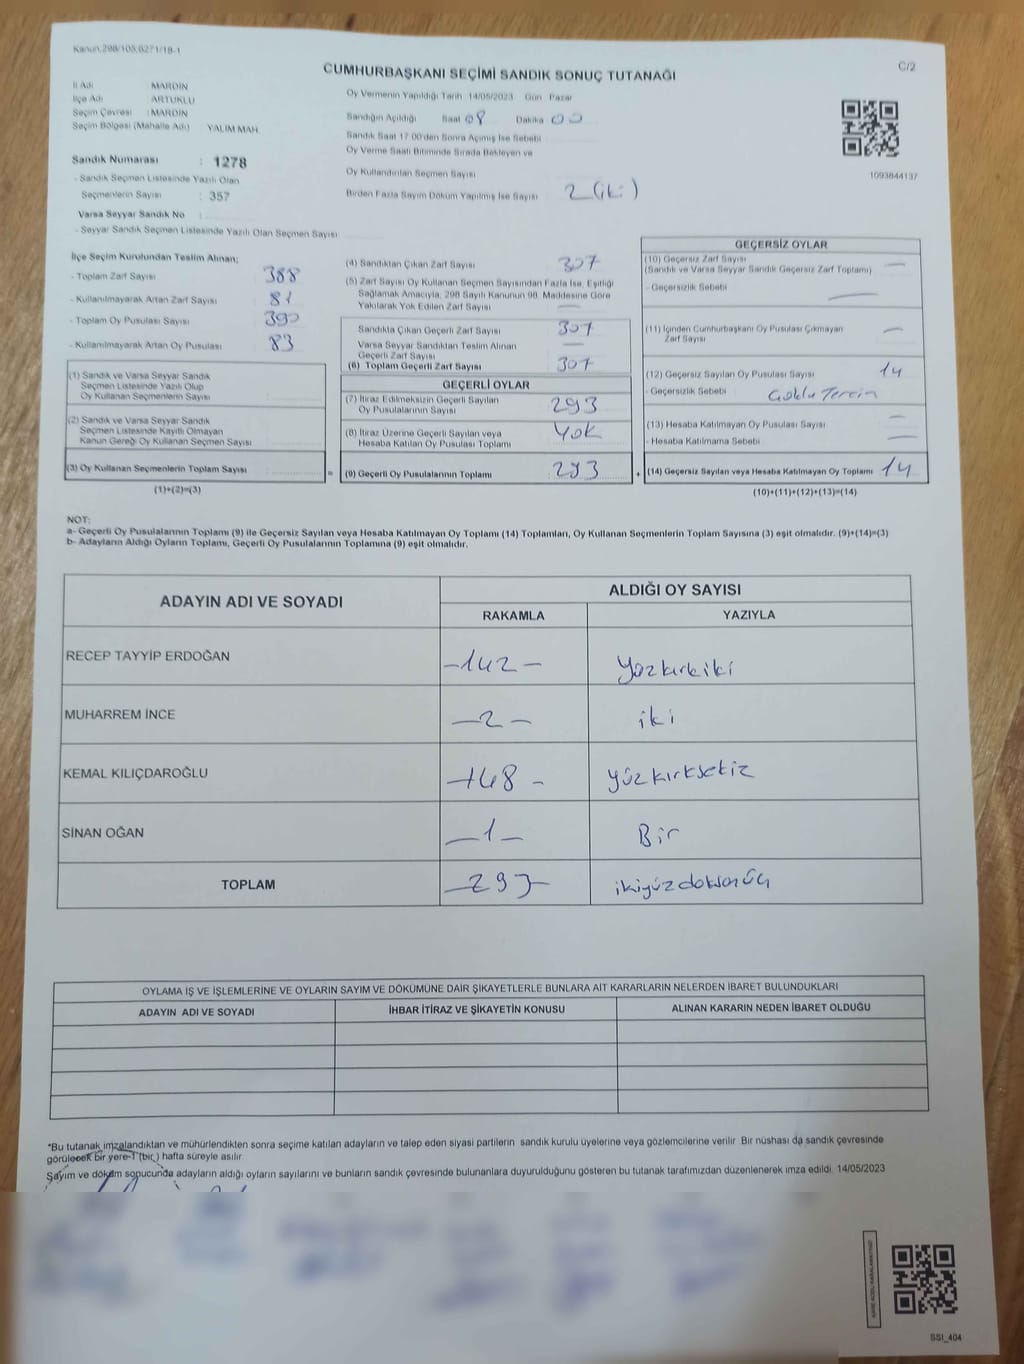 Kanun,298/105,6271/18-1
C/2
CUMHURBAŞKANI SEÇİMİ SANDIK SONUÇ TUTANAĞI
İl Adı MARDİN
İlçe Adı ARTUKLU
Seçim Çevresi : MARDİN
Seçim Bölgesi (Mahalle Adı) YALIM MAH.
Oy Vermenin Yapıldığı Tarih 14/05/2023 Gün Pazar
Sandığın Açıldığı Saat 08 Dakika 00
Sandık Saat 17.00'den Sonra Açılmış İse Sebebi
Oy Verme Saati Bitiminde Sırada Bekleyen ve
Oy Kullandırılan Seçmen Sayısı
Birden Fazla Sayım Döküm Yapılmış İse Sayısı 2 (iki)
1093844137
Sandık Numarası : 1278
- Sandık Seçmen Listesinde Yazılı Olan
Seçmenlerin Sayısı : 357
Varsa Seyyar Sandık No :
- Seyyar Sandık Seçmen Listesinde Yazılı Olan Seçmen Sayısı
İlçe Seçim Kurulundan Teslim Alınan;
- Toplam Zarf Sayısı 388
- Kullanılmayarak Artan Zarf Sayısı 81
- Toplam Oy Pusulası Sayısı 390
- Kullanılmayarak Artan Oy Pusulası 83
(1) Sandık ve Varsa Seyyar Sandık
Seçmen Listesinde Yazılı Olup
Oy Kullanan Seçmenlerin Sayısı :
(2) Sandık ve Varsa Seyyar Sandık
Seçmen Listesinde Kayıtlı Olmayan
Kanun Gereği Oy Kullanan Seçmen Sayısı
(3) Oy Kullanan Seçmenlerin Toplam Sayısı :
(1)+(2)=(3)
(4) Sandıktan Çıkan Zarf Sayısı 307
(5) Zarf Sayısı Oy Kullanan Seçmen Sayısından Fazla İse, Eşitliği
Sağlamak Amacıyla, 298 Sayılı Kanunun 98. Maddesine Göre
Yakılarak Yok Edilen Zarf Sayısı —
Sandıkta Çıkan Geçerli Zarf Sayısı 307
Varsa Seyyar Sandıktan Teslim Alınan
Geçerli Zarf Sayısı —
(6) Toplam Geçerli Zarf Sayısı 307
GEÇERLİ OYLAR
(7) İtiraz Edilmeksizin Geçerli Sayılan
Oy Pusulalarının Sayısı 293
(8) İtiraz Üzerine Geçerli Sayılan veya
Hesaba Katılan Oy Pusulası Toplamı Yok
= (9) Geçerli Oy Pusulalarının Toplamı : 293 +
GEÇERSİZ OYLAR
(10) Geçersiz Zarf Sayısı
(Sandık ve Varsa Seyyar Sandık Geçersiz Zarf Toplamı) —
- Geçersizlik Sebebi —
(11) İçinden Cumhurbaşkanı Oy Pusulası Çıkmayan
Zarf Sayısı —
(12) Geçersiz Sayılan Oy Pusulası Sayısı 14
- Geçersizlik Sebebi Çoklu Tercih
(13) Hesaba Katılmayan Oy Pusulası Sayısı —
- Hesaba Katılmama Sebebi —
(14) Geçersiz Sayılan veya Hesaba Katılmayan Oy Toplamı 14
(10)+(11)+(12)+(13)=(14)
NOT:
a- Geçerli Oy Pusulalarının Toplamı (9) ile Geçersiz Sayılan veya Hesaba Katılmayan Oy Toplamı (14) Toplamları, Oy Kullanan Seçmenlerin Toplam Sayısına (3) eşit olmalıdır. (9)+(14)=(3)
b- Adayların Aldığı Oyların Toplamı, Geçerli Oy Pusulalarının Toplamına (9) eşit olmalıdır.
ADAYIN ADI VE SOYADI
ALDIĞI OY SAYISI
RAKAMLA YAZIYLA
RECEP TAYYİP ERDOĞAN —142— Yüzkırkiki
MUHARREM İNCE —2— iki
KEMAL KILIÇDAROĞLU —148— yüzkırksekiz
SİNAN OĞAN —1— Bir
TOPLAM —293— ikiyüzdoksanüç
OYLAMA İŞ VE İŞLEMLERİNE VE OYLARIN SAYIM VE DÖKÜMÜNE DAİR ŞİKAYETLERLE BUNLARA AİT KARARLARIN NELERDEN İBARET BULUNDUKLARI
ADAYIN ADI VE SOYADI İHBAR İTİRAZ VE ŞİKAYETİN KONUSU ALINAN KARARIN NEDEN İBARET OLDUĞU
*Bu tutanak imzalandıktan ve mühürlendikten sonra seçime katılan adayların ve talep eden siyasi partilerin sandık kurulu üyelerine veya gözlemcilerine verilir. Bir nüshası da sandık çevresinde
görülecek bir yere 1 (bir) hafta süreyle asılır.
Sayım ve döküm sonucunda adayların aldığı oyların sayılarını ve bunların sandık çevresinde bulunanlara duyurulduğunu gösteren bu tutanak tarafımızdan düzenlenerek imza edildi. 14/05/2023
SSI_404